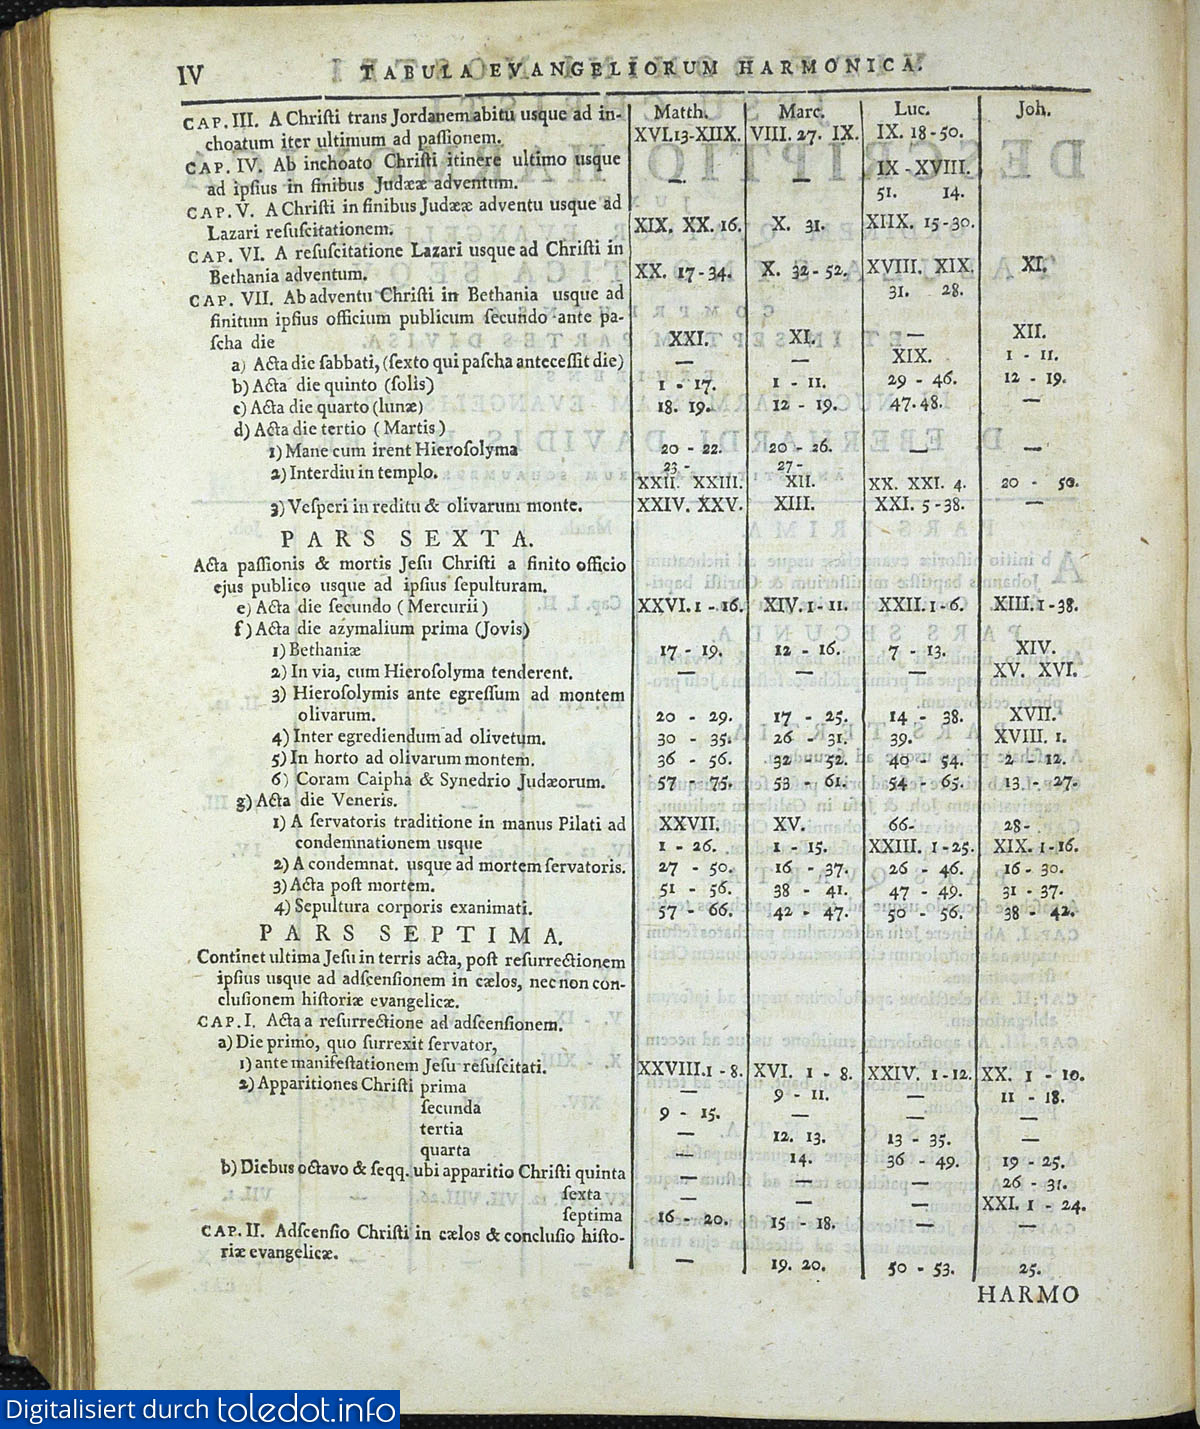 IV TABULA EVANGELIORUM HARMONICA.
Matth. Marc. Luc. Joh.
CAP. III. A Chriſti trans Jordanem abitu usque ad in-
choatum iter ultimum ad paſſionem. XVI.13-XIIX. VIII. 27. IX. IX. 18-50.
CAP. IV. Ab inchoato Chriſti itinere ultimo usque IX-XVIII.
ad ipſius in finibus Judææ adventum. — — 51. 14.
CAP. V. A Chriſti in finibus Judææ adventu usque ad
Lazari reſuſcitationem. XIX. XX. 16. X. 31. XIIX. 15-30.
CAP. VI. A reſuſcitatione Lazari usque ad Chriſti in
Bethania adventum. XX. 17-34. X. 32-52. XVIII. XIX. XI.
31. 28.
CAP. VII. Ab adventu Chriſti in Bethania usque ad
finitum ipſius officium publicum ſecundo ante pa-
ſcha die XXI. XI. — XII.
a) Acta die ſabbati, (ſexto qui paſcha anteceſſit die) — — XIX. 1 - 11.
b) Acta die quinto (ſolis) 1 - 17. 1 - 11. 29 - 46. 12 - 19.
c) Acta die quarto (lunæ) 18. 19. 12 - 19. 47. 48. —
d) Acta die tertio (Martis)
1) Mane cum irent Hieroſolyma 20 - 22. 20 - 26. — —
23 - 27 -
2) Interdiu in templo. XXII. XXIII. XII. XX. XXI. 4. 20 - 50.
3) Veſperi in reditu & olivarum monte. XXIV. XXV. XIII. XXI. 5-38. —
PARS SEXTA.
Acta paſſionis & mortis Jeſu Chriſti a finito officio
ejus publico usque ad ipſius ſepulturam.
e) Acta die ſecundo (Mercurii) XXVI. 1 - 16. XIV. 1 - 11. XXII. 1 - 6. XIII. 1-38.
f) Acta die azymalium prima (Jovis)
1) Bethaniæ 17 - 19. 12 - 16. 7 - 13. XIV.
2) In via, cum Hieroſolyma tenderent. — — — XV. XVI.
3) Hieroſolymis ante egreſſum ad montem
olivarum. 20 - 29. 17 - 25. 14 - 38. XVII.
4) Inter egrediendum ad olivetum. 30 - 35. 26 - 31. 39. XVIII. 1.
5) In horto ad olivarum montem. 36 - 56. 32 - 52. 40 - 54. 2 - 12.
6) Coram Caipha & Synedrio Judæorum. 57 - 75. 53 - 61. 54 - 65. 13 - 27.
g) Acta die Veneris.
1) A ſervatoris traditione in manus Pilati ad XXVII. XV. 66- 28-
condemnationem usque 1 - 26. 1 - 15. XXIII. 1-25. XIX. 1-16.
2) A condemnat. usque ad mortem ſervatoris. 27 - 50. 16 - 37. 26 - 46. 16 - 30.
3) Acta poſt mortem. 51 - 56. 38 - 41. 47 - 49. 31 - 37.
4) Sepultura corporis exanimati. 57 - 66. 42 - 47. 50 - 56. 38 - 42.
PARS SEPTIMA.
Continet ultima Jeſu in terris acta, poſt reſurrectionem
ipſius usque ad adſcenſionem in cælos, nec non con-
cluſionem hiſtoriæ evangelicæ.
CAP. I. Acta a reſurrectione ad adſcenſionem.
a) Die primo, quo ſurrexit ſervator,
1) ante manifeſtationem Jeſu reſuſcitati. XXVIII. 1 - 8. XVI. 1 - 8. XXIV. 1-12. XX. 1 - 10.
2) Apparitiones Chriſti prima — 9 - 11. — 11 - 18.
ſecunda 9 - 15. — — —
tertia — 12. 13. 13 - 35. —
quarta — 14. 36 - 49. 19 - 25.
b) Diebus octavo & ſeqq. ubi apparitio Chriſti quinta — — — 26 - 31.
ſexta — — — XXI. 1 - 24.
ſeptima 16 - 20. 15 - 18. — —
CAP. II. Adſcenſio Chriſti in cælos & concluſio hiſto-
riæ evangelicæ. — 19. 20. 50 - 53. 25.
HARMO
Digitalisiert durch toledot.info